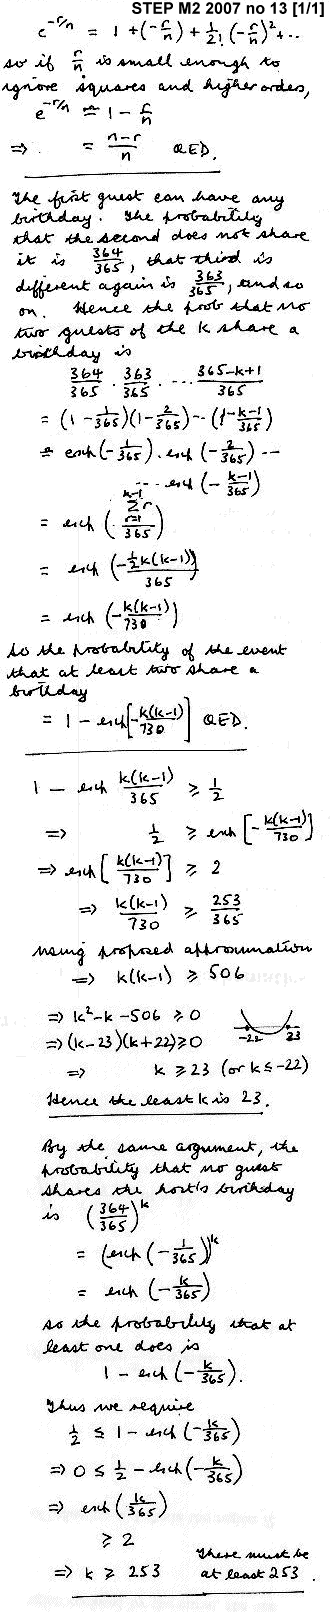 STEP M2 2007 no 13 [1/1]
e^{-r/n} = 1 + (-r/n) + 1/2! (-r/n)^2 + ..
so if r/n is small enough to
ignore squares and higher orders,
e^{-r/n} ≏ 1 - r/n
⇒ = (n-r)/n QED.
The first guest can have any
birthday. The probability
that the second does not share
it is 364/365, that third is
different again is 363/365, and so
on. Hence the prob that no
two guests of the k share a
birthday is
364/365 . 363/365 . ... (365-k+1)/365
= (1 - 1/365)(1 - 2/365) -- (1 - (k-1)/365)
≏ exp(-1/365) . exp(-2/365) --
... exp(-(k-1)/365)
= exp(. Σ_{r=1}^{k-1} r / 365)
= exp(-½k(k-1) / 365)
= exp(-k(k-1)/730)
So the probability of the event
that at least two share a
birthday
= 1 - exp[-k(k-1)/730] QED.
1 - exp k(k-1)/365 ⩾ 1/2
⇒ 1/2 ⩾ exp[-k(k-1)/730]
⇒ exp[k(k-1)/730] ⩾ 2
⇒ k(k-1)/730 ⩾ 253/365
using proposed approximation
⇒ k(k-1) ⩾ 506
⇒ k² - k - 506 ⩾ 0
-22 23
⇒ (k-23)(k+22) ⩾ 0
⇒ k ⩾ 23 (or k ⩽ -22)
Hence the least k is 23.
By the same argument, the
probability that no guest
shares the host's birthday
is (364/365)^k
= (exp(-1/365))^k
= exp(-k/365)
so the probability that at
least one does is
1 - exp(-k/365).
Thus we require
1/2 ⩽ 1 - exp(-k/365)
⇒ 0 ⩽ 1/2 - exp(-k/365)
⇒ exp(k/365)
⩾ 2
⇒ k ⩾ 253
There must be
at least 253.